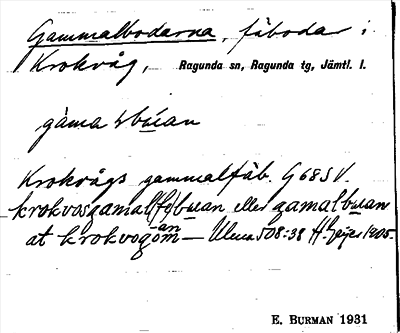 Gammalbodarna, fäbodar i
Krokvåg, Ragunda sn, Ragunda tg, Jämtl. l.
gàma buan
Krokvågs gammalfäb. G 68 S V.
krokvosgamal buan eller gamalbuan
at krokvogom — Ulma 508:38 H. Geijer 1905.
an
E. BURMAN 1931